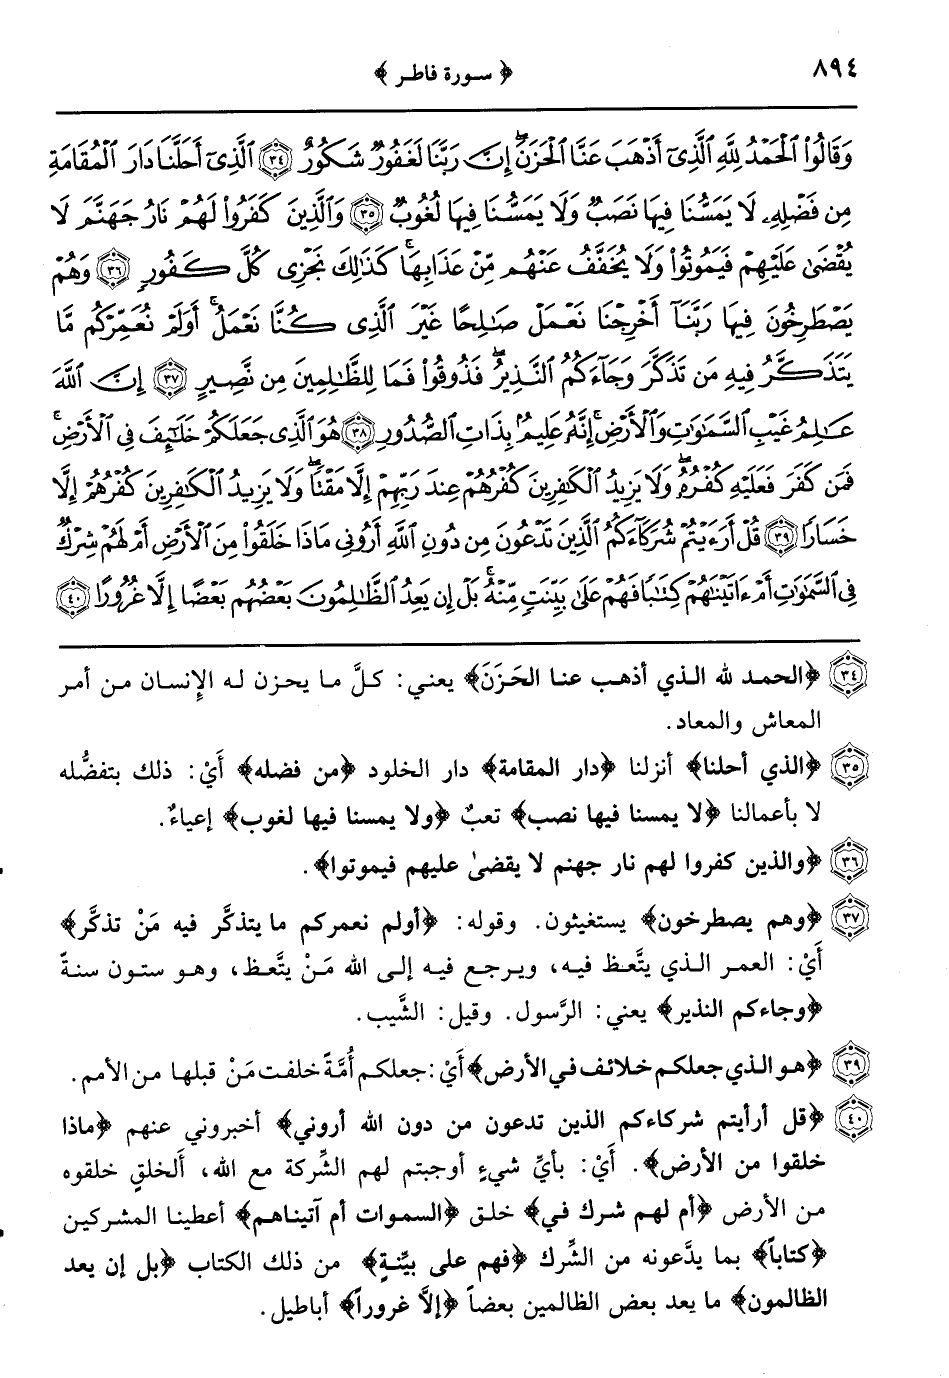 ٨٩٤
﴿ سورة فاطر ﴾
وَقَالُوا۟ ٱلْحَمْدُ لِلَّهِ ٱلَّذِىٓ أَذْهَبَ عَنَّا ٱلْحَزَنَ ۖ إِنَّ رَبَّنَا لَغَفُورٌ شَكُورٌ ﴿٣٤﴾ ٱلَّذِىٓ أَحَلَّنَا دَارَ ٱلْمُقَامَةِ
مِن فَضْلِهِۦ لَا يَمَسُّنَا فِيهَا نَصَبٌ وَلَا يَمَسُّنَا فِيهَا لُغُوبٌ ﴿٣٥﴾ وَٱلَّذِينَ كَفَرُوا۟ لَهُمْ نَارُ جَهَنَّمَ لَا
يُقْضَىٰ عَلَيْهِمْ فَيَمُوتُوا۟ وَلَا يُخَفَّفُ عَنْهُم مِّنْ عَذَابِهَا ۚ كَذَٰلِكَ نَجْزِى كُلَّ كَفُورٍ ﴿٣٦﴾ وَهُمْ
يَصْطَرِخُونَ فِيهَا رَبَّنَآ أَخْرِجْنَا نَعْمَلْ صَٰلِحًا غَيْرَ ٱلَّذِى كُنَّا نَعْمَلُ ۚ أَوَلَمْ نُعَمِّرْكُم مَّا
يَتَذَكَّرُ فِيهِ مَن تَذَكَّرَ وَجَآءَكُمُ ٱلنَّذِيرُ ۖ فَذُوقُوا۟ فَمَا لِلظَّٰلِمِينَ مِن نَّصِيرٍ ﴿٣٧﴾ إِنَّ ٱللَّهَ
عَٰلِمُ غَيْبِ ٱلسَّمَٰوَٰتِ وَٱلْأَرْضِ ۚ إِنَّهُۥ عَلِيمٌۢ بِذَاتِ ٱلصُّدُورِ ﴿٣٨﴾ هُوَ ٱلَّذِى جَعَلَكُمْ خَلَٰٓئِفَ فِى ٱلْأَرْضِ ۚ
فَمَن كَفَرَ فَعَلَيْهِ كُفْرُهُۥ ۖ وَلَا يَزِيدُ ٱلْكَٰفِرِينَ كُفْرُهُمْ عِندَ رَبِّهِمْ إِلَّا مَقْتًا ۖ وَلَا يَزِيدُ ٱلْكَٰفِرِينَ كُفْرُهُمْ إِلَّا
خَسَارًا ﴿٣٩﴾ قُلْ أَرَءَيْتُمْ شُرَكَآءَكُمُ ٱلَّذِينَ تَدْعُونَ مِن دُونِ ٱللَّهِ أَرُونِى مَاذَا خَلَقُوا۟ مِنَ ٱلْأَرْضِ أَمْ لَهُمْ شِرْكٌ
فِى ٱلسَّمَٰوَٰتِ أَمْ ءَاتَيْنَٰهُمْ كِتَٰبًا فَهُمْ عَلَىٰ بَيِّنَتٍ مِّنْهُ ۚ بَلْ إِن يَعِدُ ٱلظَّٰلِمُونَ بَعْضُهُم بَعْضًا إِلَّا غُرُورًا ﴿٤٠﴾
﴿٣٤﴾ ﴿الحمد لله الذي أذهب عنا الحَزَنَ﴾ يعني: كلَّ ما يحزن له الإنسان من أمر
المعاش والمعاد.
﴿٣٥﴾ ﴿الذي أحلنا﴾ أنزلنا ﴿دار المقامة﴾ دار الخلود ﴿من فضله﴾ أَيْ: ذلك بتفضُّله
لا بأعمالنا ﴿لا يمسنا فيها نصب﴾ تعبٌ ﴿ولا يمسنا فيها لغوب﴾ إعياءٌ.
﴿٣٦﴾ ﴿والذين كفروا لهم نار جهنم لا يقضىٰ عليهم فيموتوا﴾.
﴿٣٧﴾ ﴿وهم يصطرخون﴾ يستغيثون. وقوله: ﴿أولم نعمركم ما يتذكَّر فيه مَنْ تذكَّر﴾
أَيْ: العمر الذي يتَّعظ فيه، ويرجع فيه إلى الله مَنْ يتَّعظ، وهو ستون سنةً
﴿وجاءكم النذير﴾ يعني: الرَّسول. وقيل: الشَّيب.
﴿٣٩﴾ ﴿هو الذي جعلكم خلائف في الأرض﴾ أَيْ: جعلكم أُمَّةً خلفت مَنْ قبلها من الأمم.
﴿٤٠﴾ ﴿قل أرأيتم شركاءكم الذين تدعون من دون الله أروني﴾ أخبروني عنهم ﴿ماذا
خلقوا من الأرض﴾. أَيْ: بأيِّ شيءٍ أوجبتم لهم الشِّركة مع الله، ألخلقٍ خلقوه
من الأرض ﴿أم لهم شرك في﴾ خلق ﴿السموات أم آتيناهم﴾ أعطينا المشركين
﴿كتاباً﴾ بما يدَّعونه من الشِّرك ﴿فهم على بيِّنةٍ﴾ من ذلك الكتاب ﴿بل إن يعد
الظالمون﴾ ما يعد بعض الظالمين بعضاً ﴿إلَّا غروراً﴾ أباطيل.